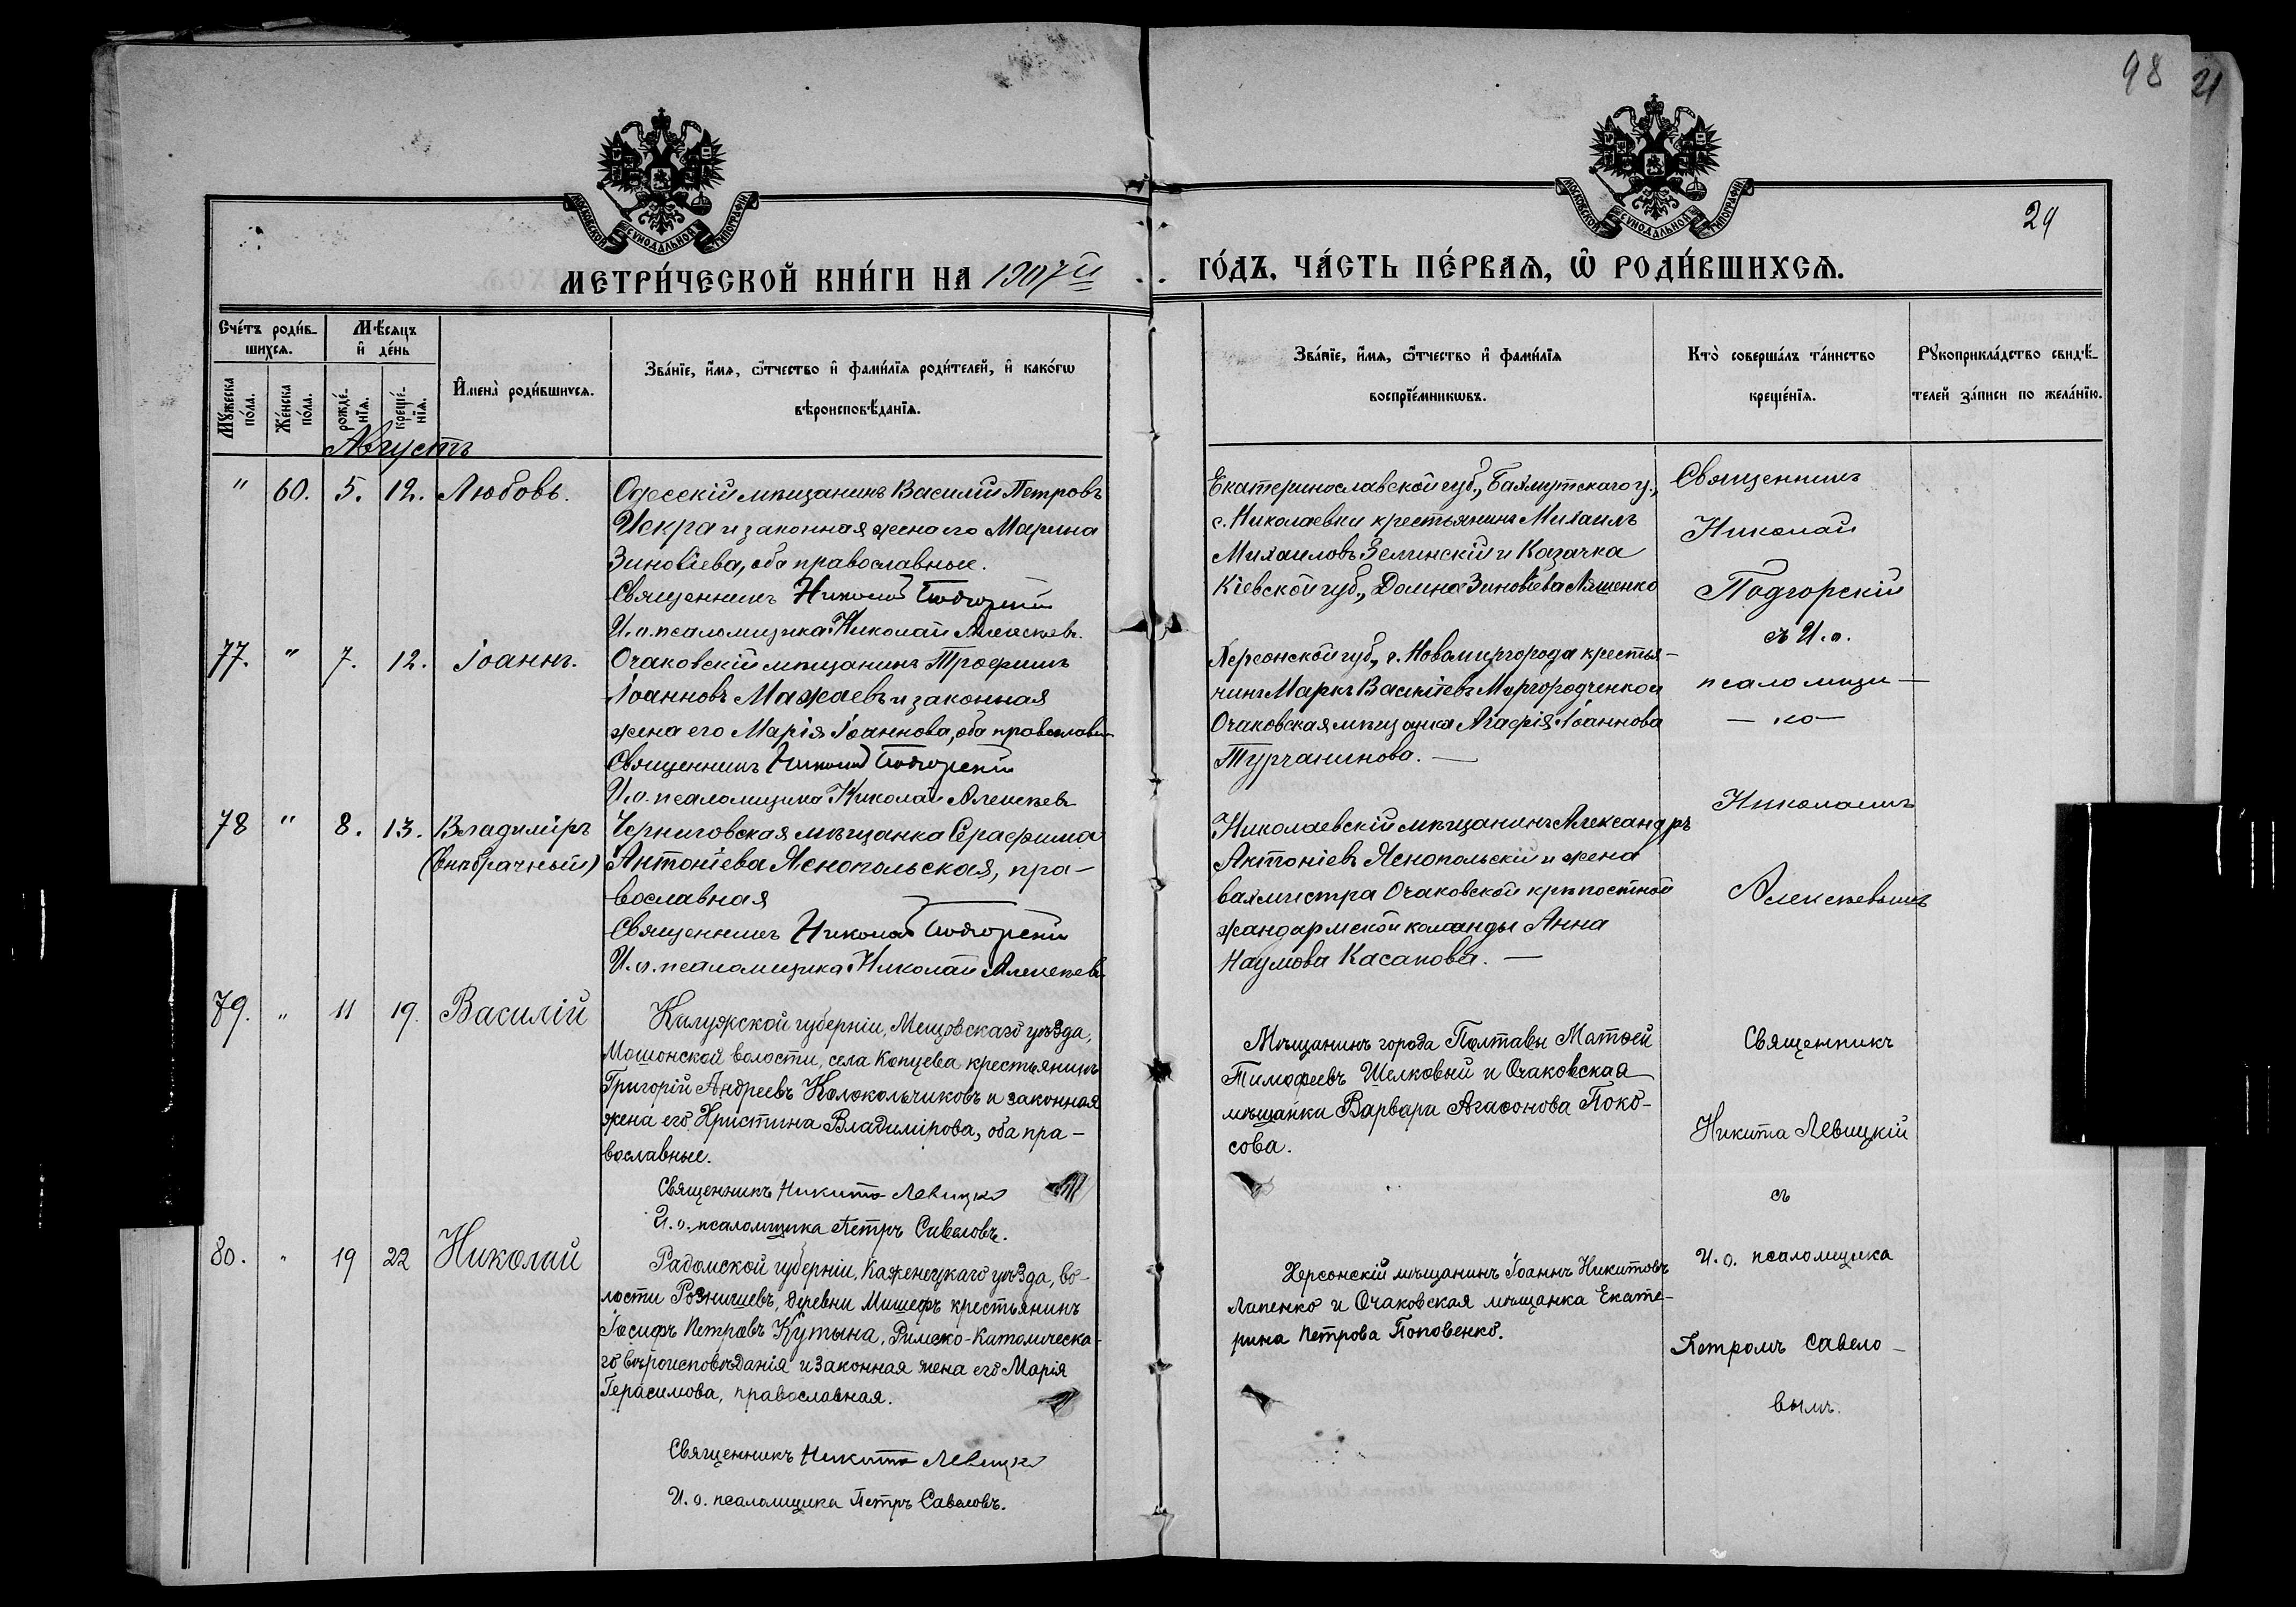 98
21
29
МОСКОВСКОЙ СУНОДАЛЬНОЙ ТИПОГРАФІИ
МОСКОВСКОЙ СУНОДАЛЬНОЙ ТИПОГРАФІИ
МЕТРИ́ЧЕСКОЙ КНИ́ГИ НА 1907й
ГО́ДЪ, ЧА́СТЬ ПЕ́РВАѦ, Ѡ҆ РОДИ́ВШИХСѦ.
Сче́тъ роди́в-
шихсѧ.
Мѣ́сяцъ
и҆ де́нь
Мꙋ́жеска по́ла.
Же́нска по́ла.
рожде́-нїѧ.
креще́-нїѧ.
И҆мена̀ роди́вшихсѧ.
Зва́нїе, и҆́мѧ, ѻ҆́тчество и҆ фами́лїѧ роди́телей, и҆ како́гѡ
вѣроисповѣ́данїѧ.
Зва́нїе, и҆́мѧ, ѻ҆́тчество и҆ фами́лїѧ
воспрїе́мникѡвъ.
Кто̀ соверша́лъ та́инство
креще́нїѧ.
Рꙋкоприкла́дство свидѣ́-
телей за́писи по жела́нїю.
Августъ
" 60. 5. 12. Любовь.
Одесскій мѣщанинъ Василій Петровъ
Искра и законная жена его Марина
Зиновіева, оба православные.
Священникъ Николай Подгорскій
И.о. псаломщика Николай Алексѣевъ.
Екатеринославской губ., Бахмутскаго у.,
с. Николаевки крестьянинъ Михаилъ
Михаиловъ Зелинскій и Козачка
Кіевской губ., Домна Зиновіева Ляшенко
Священникъ
Николай
Подгорскій
съ И.о.
псаломщи-
-ко-
Николаемъ
Алексѣевымъ
77. " 7. 12. Іоаннъ.
Очаковскій мѣщанинъ Трофимъ
Іоанновъ Мажаевъ и законная
жена его Марія Іоаннова, оба православн
Священникъ Николай Подгорскій
И.о. псаломщика Николай Алексѣевъ
Херсонской губ., г. Новомиргорода крестья-
нинъ Маркъ Василіевъ Миргородченко и
Очаковская мѣщанка Агафія Іоаннова
Турчанинова. —
78 " 8. 13. Владиміръ
(внѣбрачный)
Черниговская мѣщанка Серафима
Антоніева Яснопольская, пра-
вославная
Священникъ Николай Подгорскій
И.о. псаломщика Николай Алексѣевъ
Николаевскій мѣщанинъ Александръ
Антоніевъ Яснопольскій и жена
вахмистра Очаковской крѣпостной
жандармской команды Анна
Наумова Касапова. —
79. " 11 19. Василій
Калужской губерніи, Мещовскаго уѣзда,
Мошонской волости, села Копцева крестьянинъ
Григорій Андреевъ Колокольчиковъ и законная
жена его Христина Владимірова, оба пра-
вославные.
Священникъ Никита Левицкій
И.о. псаломщика Петръ Савеловъ.
Мѣщанинъ города Полтавы Матѳей
Тимофеевъ Шелковый и Очаковская
мѣщанка Варвара Агаѳонова Поко-
сова.
Священникъ
Никита Левицкій
съ
И.о. псаломщика
Петромъ Савело-
вымъ.
80. " 19 22 Николай
Радомской губерніи, Каженецкаго уѣзда, во-
лости Рознишевъ, деревни Мишефъ крестьянинъ
Іосифъ Петровъ Кутына, Римско-Католическа-
го вѣроисповѣданія и законная жена его Марія
Герасимова, православная.
Священникъ Никита Левицкій
И.о. псаломщика Петръ Савеловъ.
Херсонскій мѣщанинъ Іоаннъ Никитовъ
Лапенко и Очаковская мѣщанка Екате-
рина Петрова Поповенко.